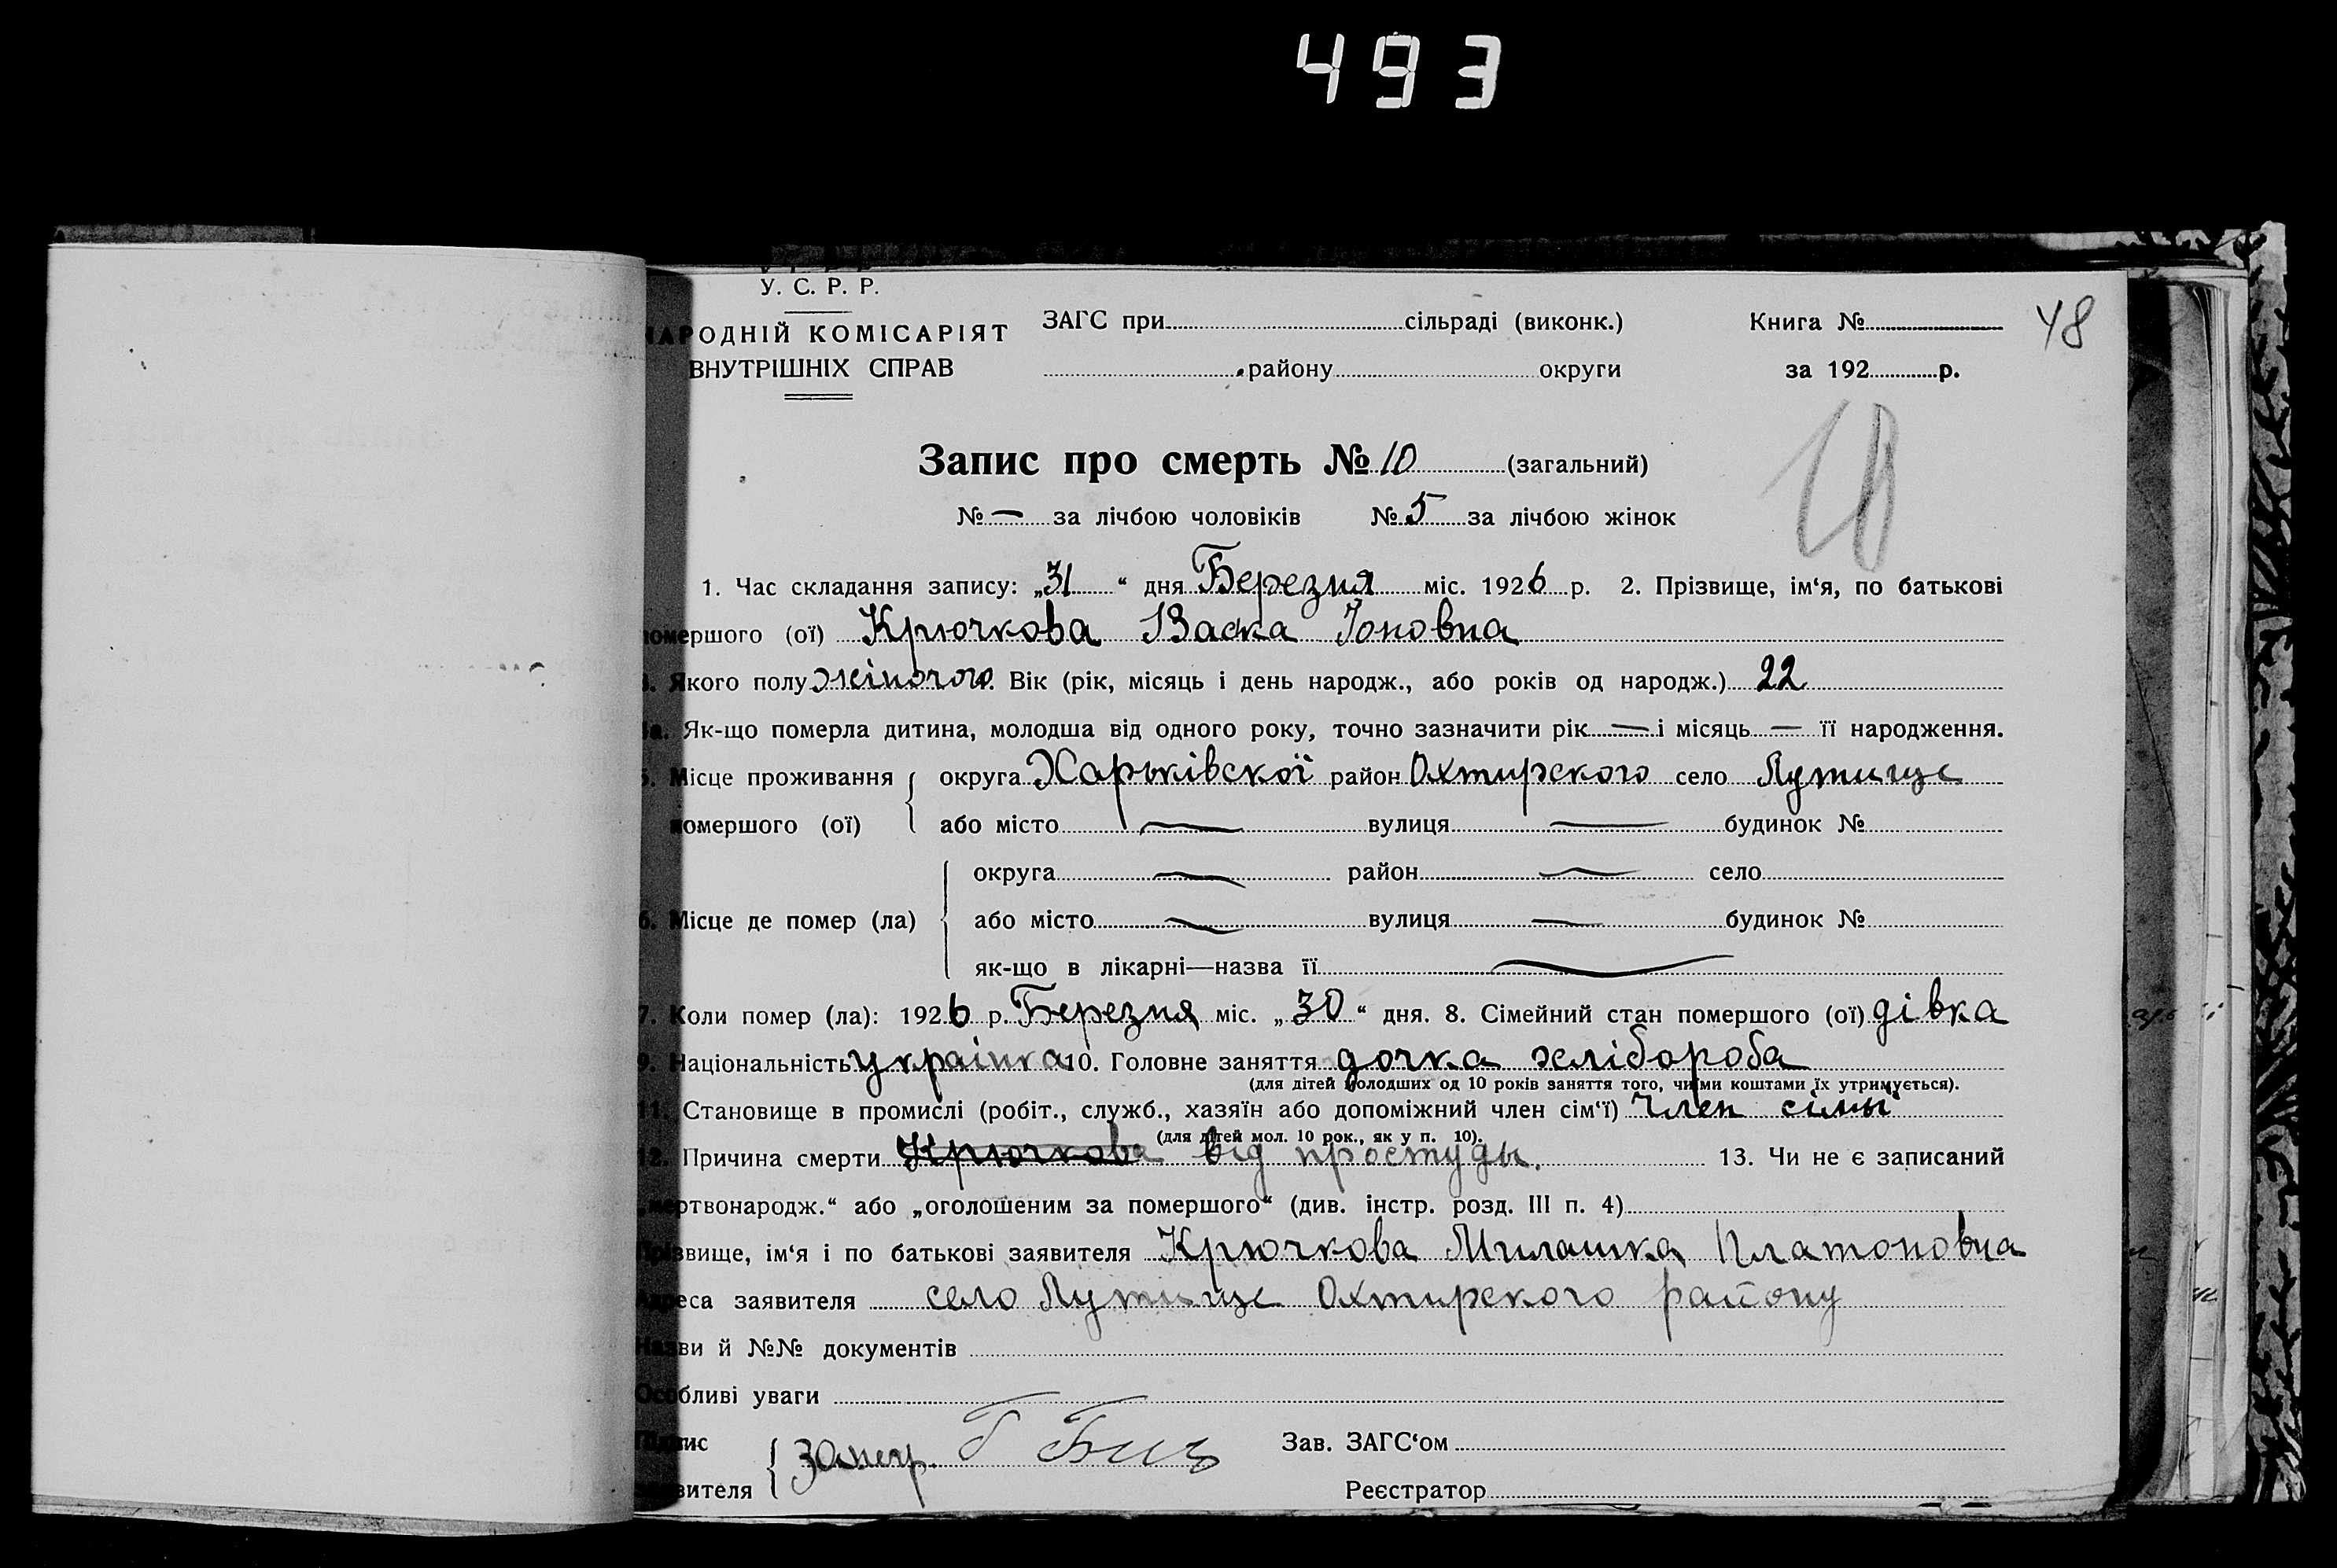 493
У. С. Р. Р.
НАРОДНІЙ КОМІСАРІЯТ
ВНУТРІШНІХ СПРАВ
ЗАГС при сільраді (виконк.)
району округи
Книга №
за 192 р.
48
Запис про смерть № 10 (загальний)
10
№ — за лічбою чоловіків № 5 за лічбою жінок
1. Час складання запису: „31“ дня Березня міс. 1926 р. 2. Прізвище, ім‘я, по батькові
помершого (ої) Крючкова Васка Іоновна
3. Якого полу жіночого. Вік (рік, місяць і день народж., або років од народж.) 22
4а. Як-що померла дитина, молодша від одного року, точно зазначити рік — і місяць — її народження.
5. Місце проживання округа Харьківскої район Охтирского село Лутище
помершого (ої) або місто — вулиця — будинок №
округа — район — село
6. Місце де помер (ла) або місто — вулиця — будинок №
як-що в лікарні—назва її —
7. Коли помер (ла): 1926 р. Березня міс. „30“ дня. 8. Сімейний стан помершого (ої) дівка
9. Національність українка 10. Головне заняття дочка хлібороба
(для дітей молодших од 10 років заняття того, чиїми коштами їх утримується).
11. Становище в промислі (робіт., служб., хазяїн або допоміжний член сім‘ї) Член сімьї
(для дітей мол. 10 рок., як у п. 10).
12. Причина смерти Крючкова від простуди. 13. Чи не є записаний
„мертвонародж.“ або „оголошеним за помершого“ (див. інстр. розд. III п. 4)
Прізвище, ім‘я і по батькові заявителя Крючкова Милашка Платоновна
Адреса заявителя село Лутище Охтирского району
Назви й №№ документів
Особливі уваги
Підпис
заявителя
Зав. ЗАГС‘ом
Реєстратор